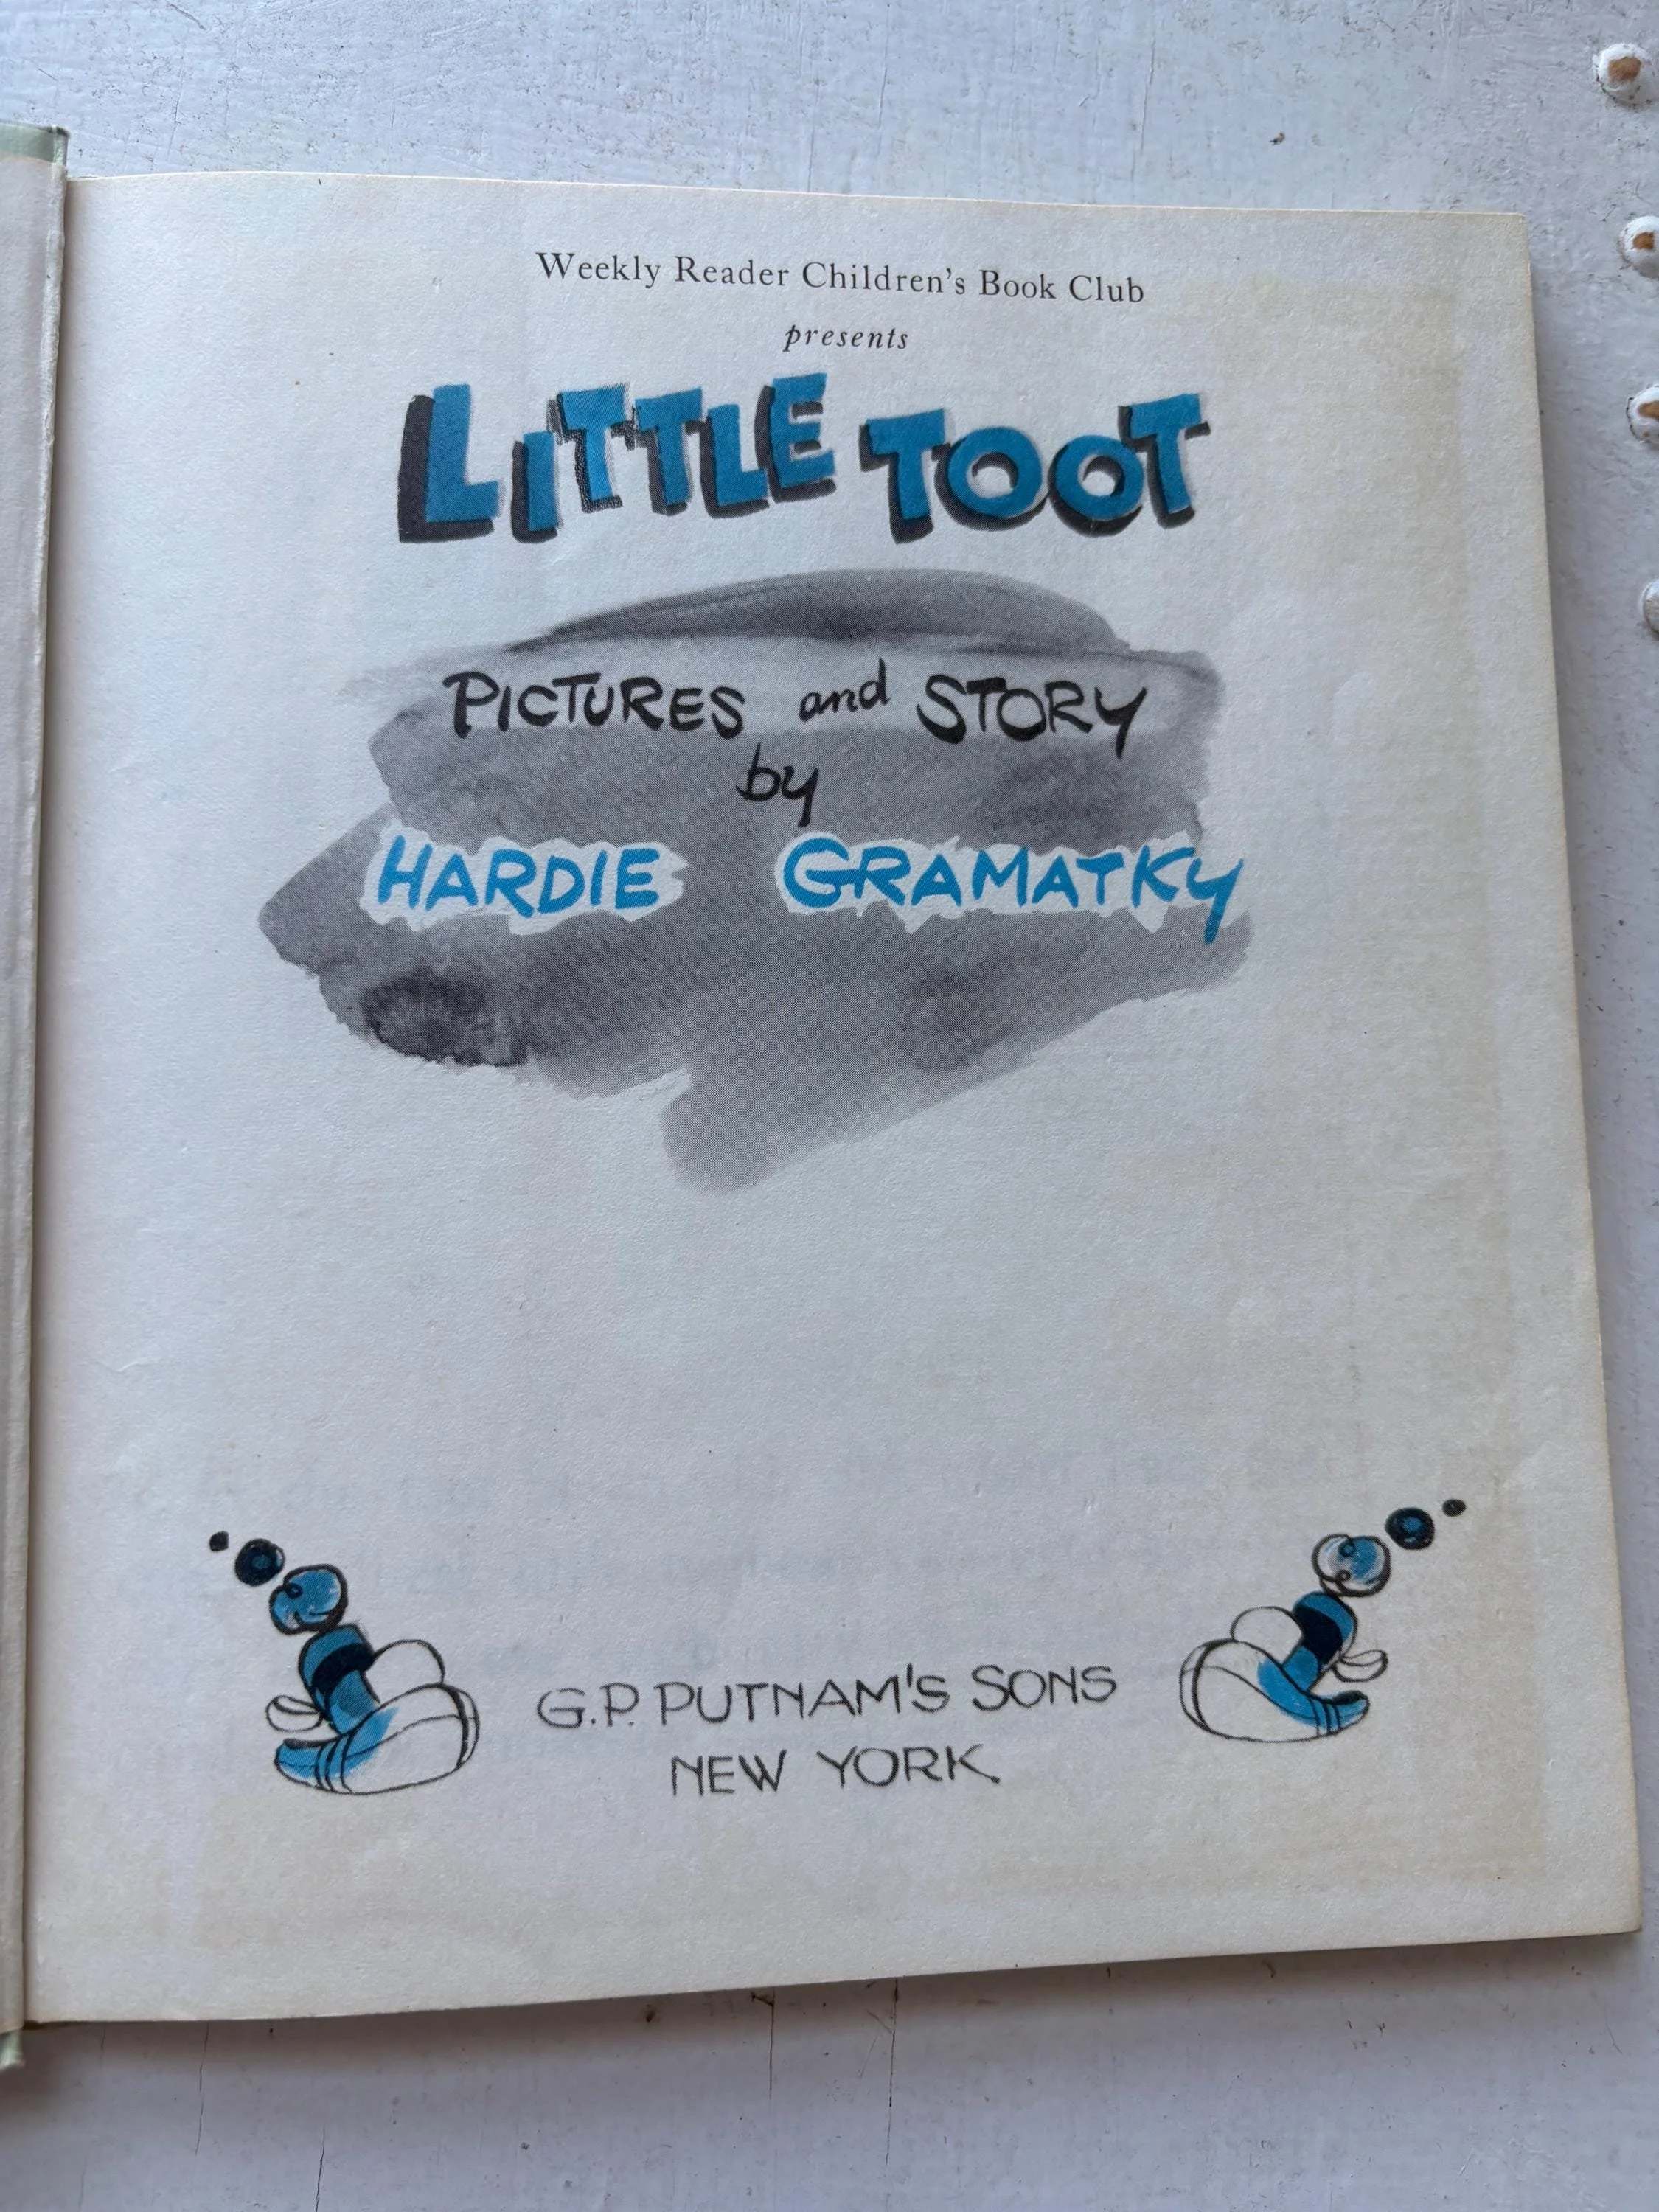 Weekly Reader Children's Book Club
presents
LITTLE TOOT
PICTURES and STORY
by
HARDIE GRAMATKY
G.P. PUTNAM'S SONS
NEW YORK.